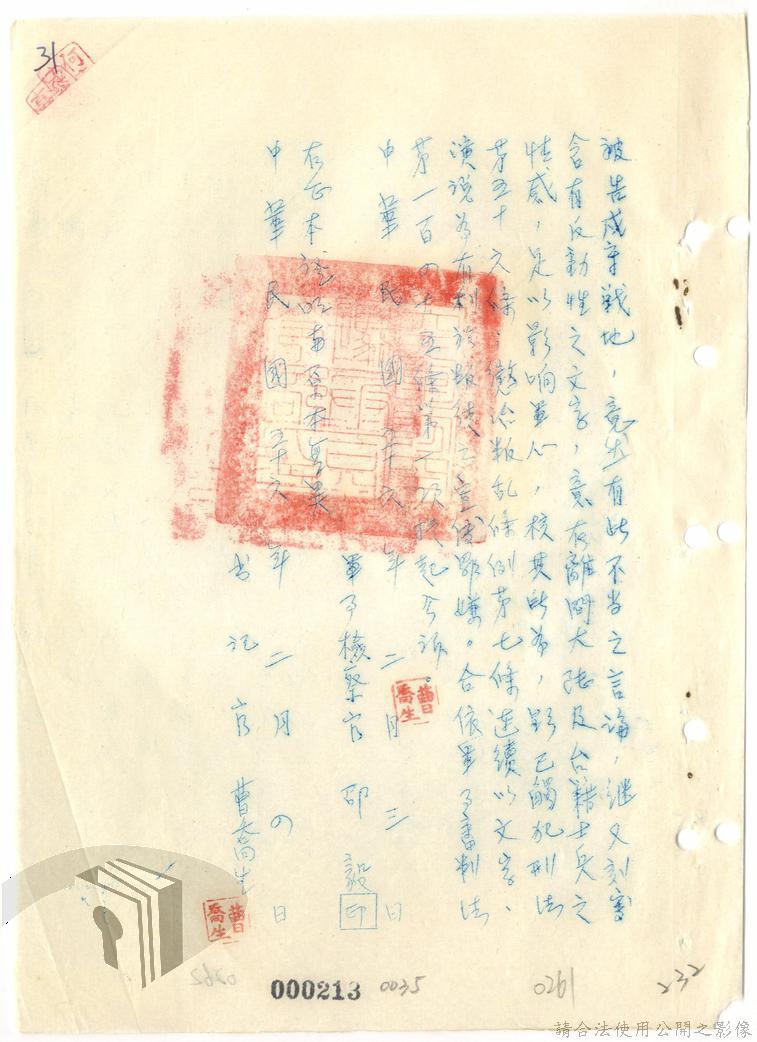 31
被告戍守戰地，竟然有此不當之言論，繼又刻寫
含有反動性之文字，意在離間大陸及台籍士兵之
情感，足以影响軍心，核其所為，顯已觸犯刑法
第五十六條、懲治叛乱條例第七條連續以文字、
演說為有利於叛徒之宣傳罪嫌。合依軍事審判法
第一百四十五條第一項提起公訴。
中華民國五十六年二月三日
軍事檢察官 邵毅 印
右正本證明與原本無異
中華民國五十六年二月四日
書記官 曹喬生
曹喬生
曹喬生
000213
0035
0261
232
0262
請合法使用公開之影像